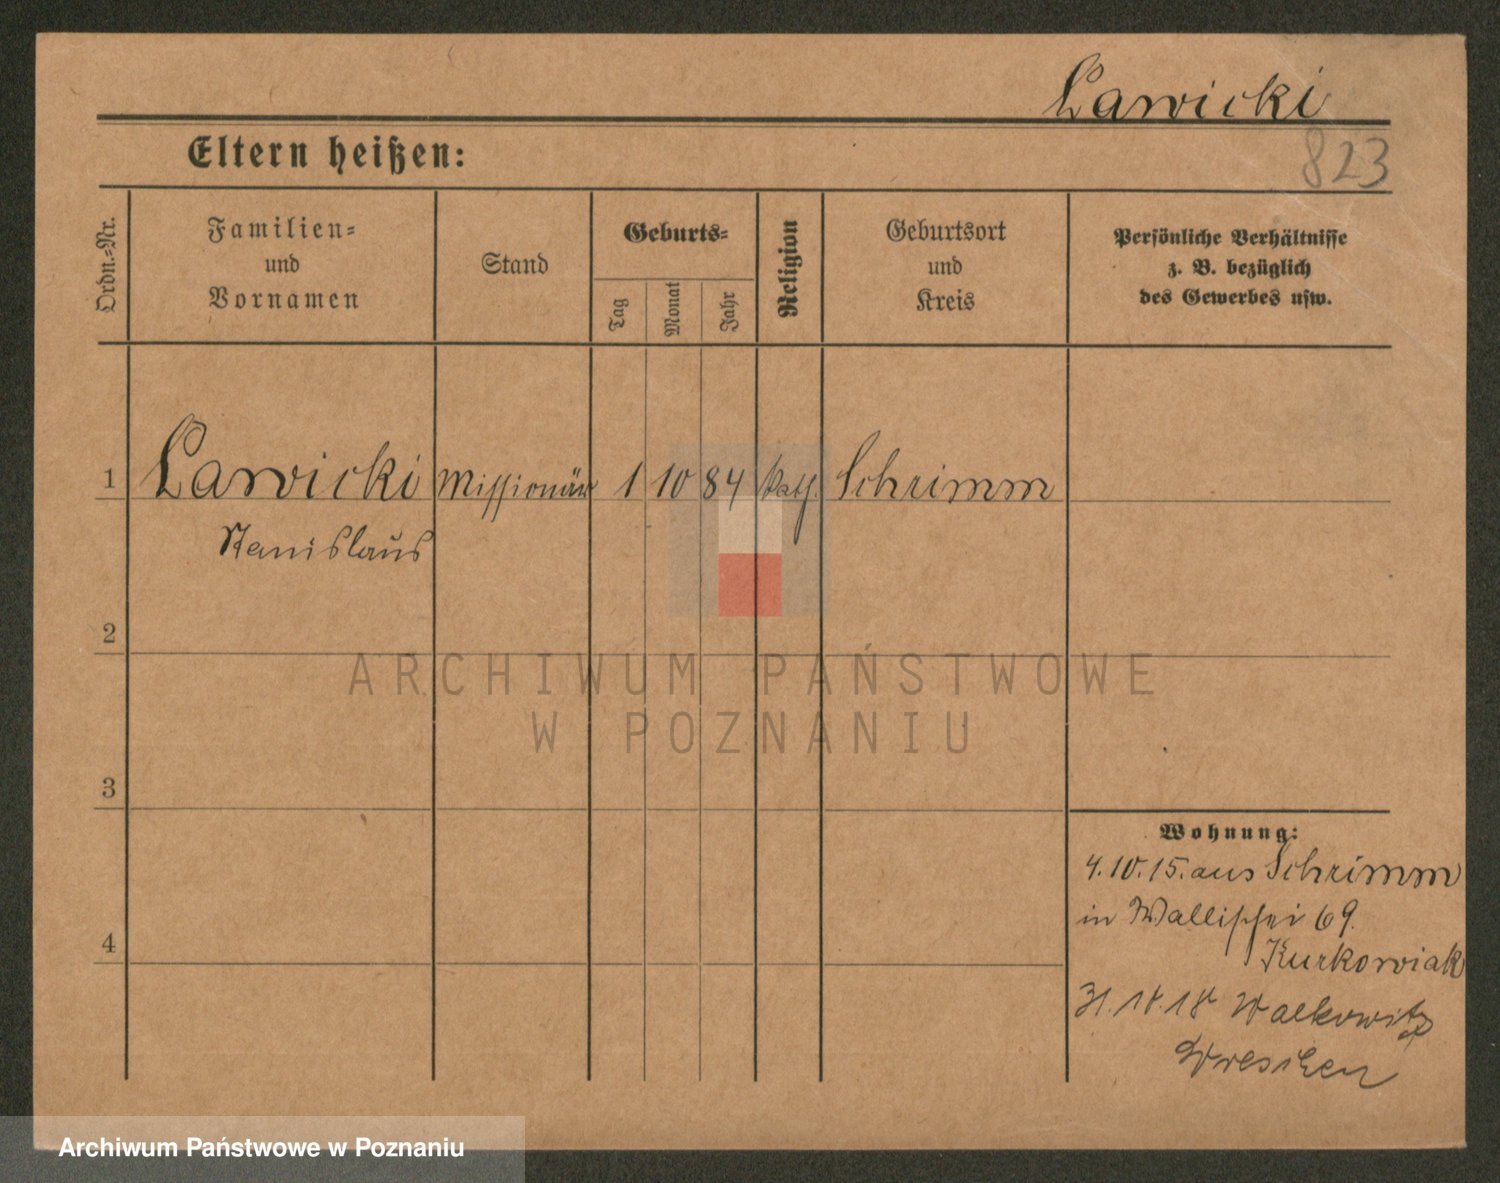 Lawicki
823
Eltern heißen:
Ordn.-Nr.
Familien-
und
Vornamen
Stand
Geburts-
Tag
Monat
Jahr
Religion
Geburtsort
und
Kreis
Persönliche Verhältnisse
z. B. bezüglich
des Gewerbes usw.
1 Lawicki Missionär 1 10 84 kath. Schrimm
Stanislaus
2
ARCHIWUM PAŃSTWOWE
W POZNANIU
3
Wohnung:
4.10.15. aus Schrimm
in Wallischei 69.
4
Kurkowiak
Wreschen
Archiwum Państwowe w Poznaniu